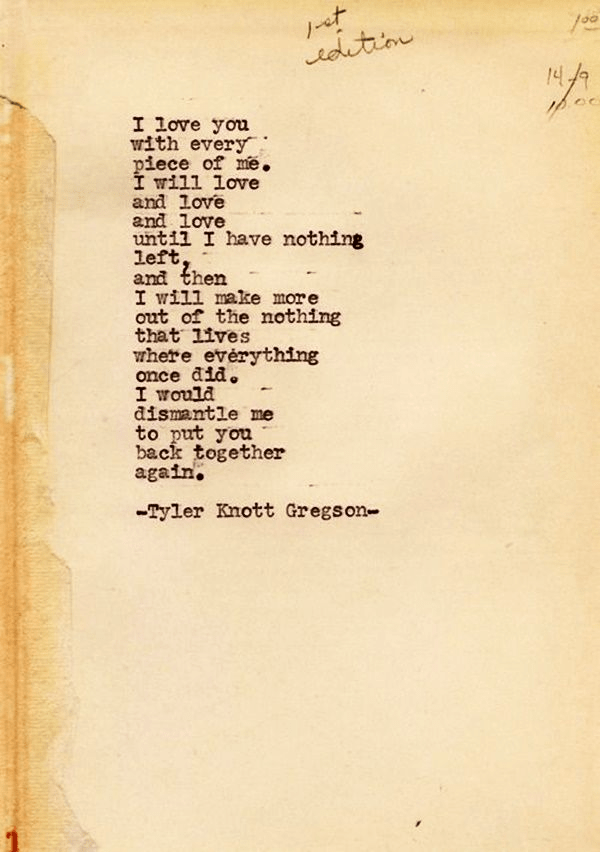 1st
edition
1.00
I love you
with every
piece of me.
I will love
and love
and love
until I have nothing
left,
and then
I will make more
out of the nothing
that lives
where everything
once did.
I would
dismantle me
to put you
back together
again.
-Tyler Knott Gregson-